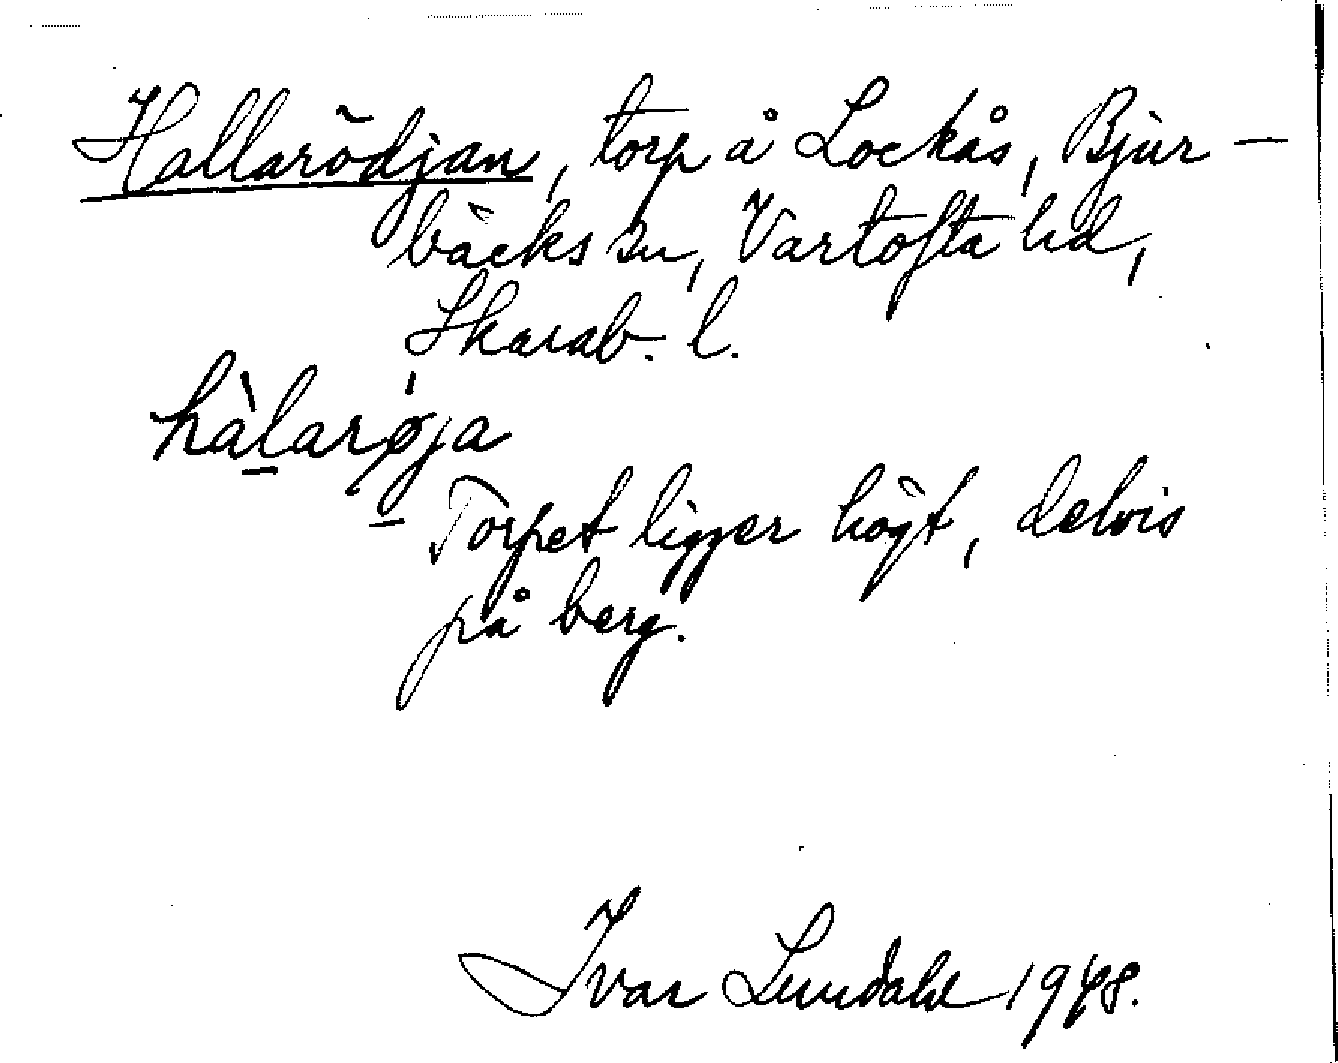 Hallarödjan, torp å Lockås, Bjur-
bäcks sn, Vartofta hd,
Skarab. l.
hàlarøja
Torpet ligger högt, delvis
på berg.
Ivar Lundahl 1948.